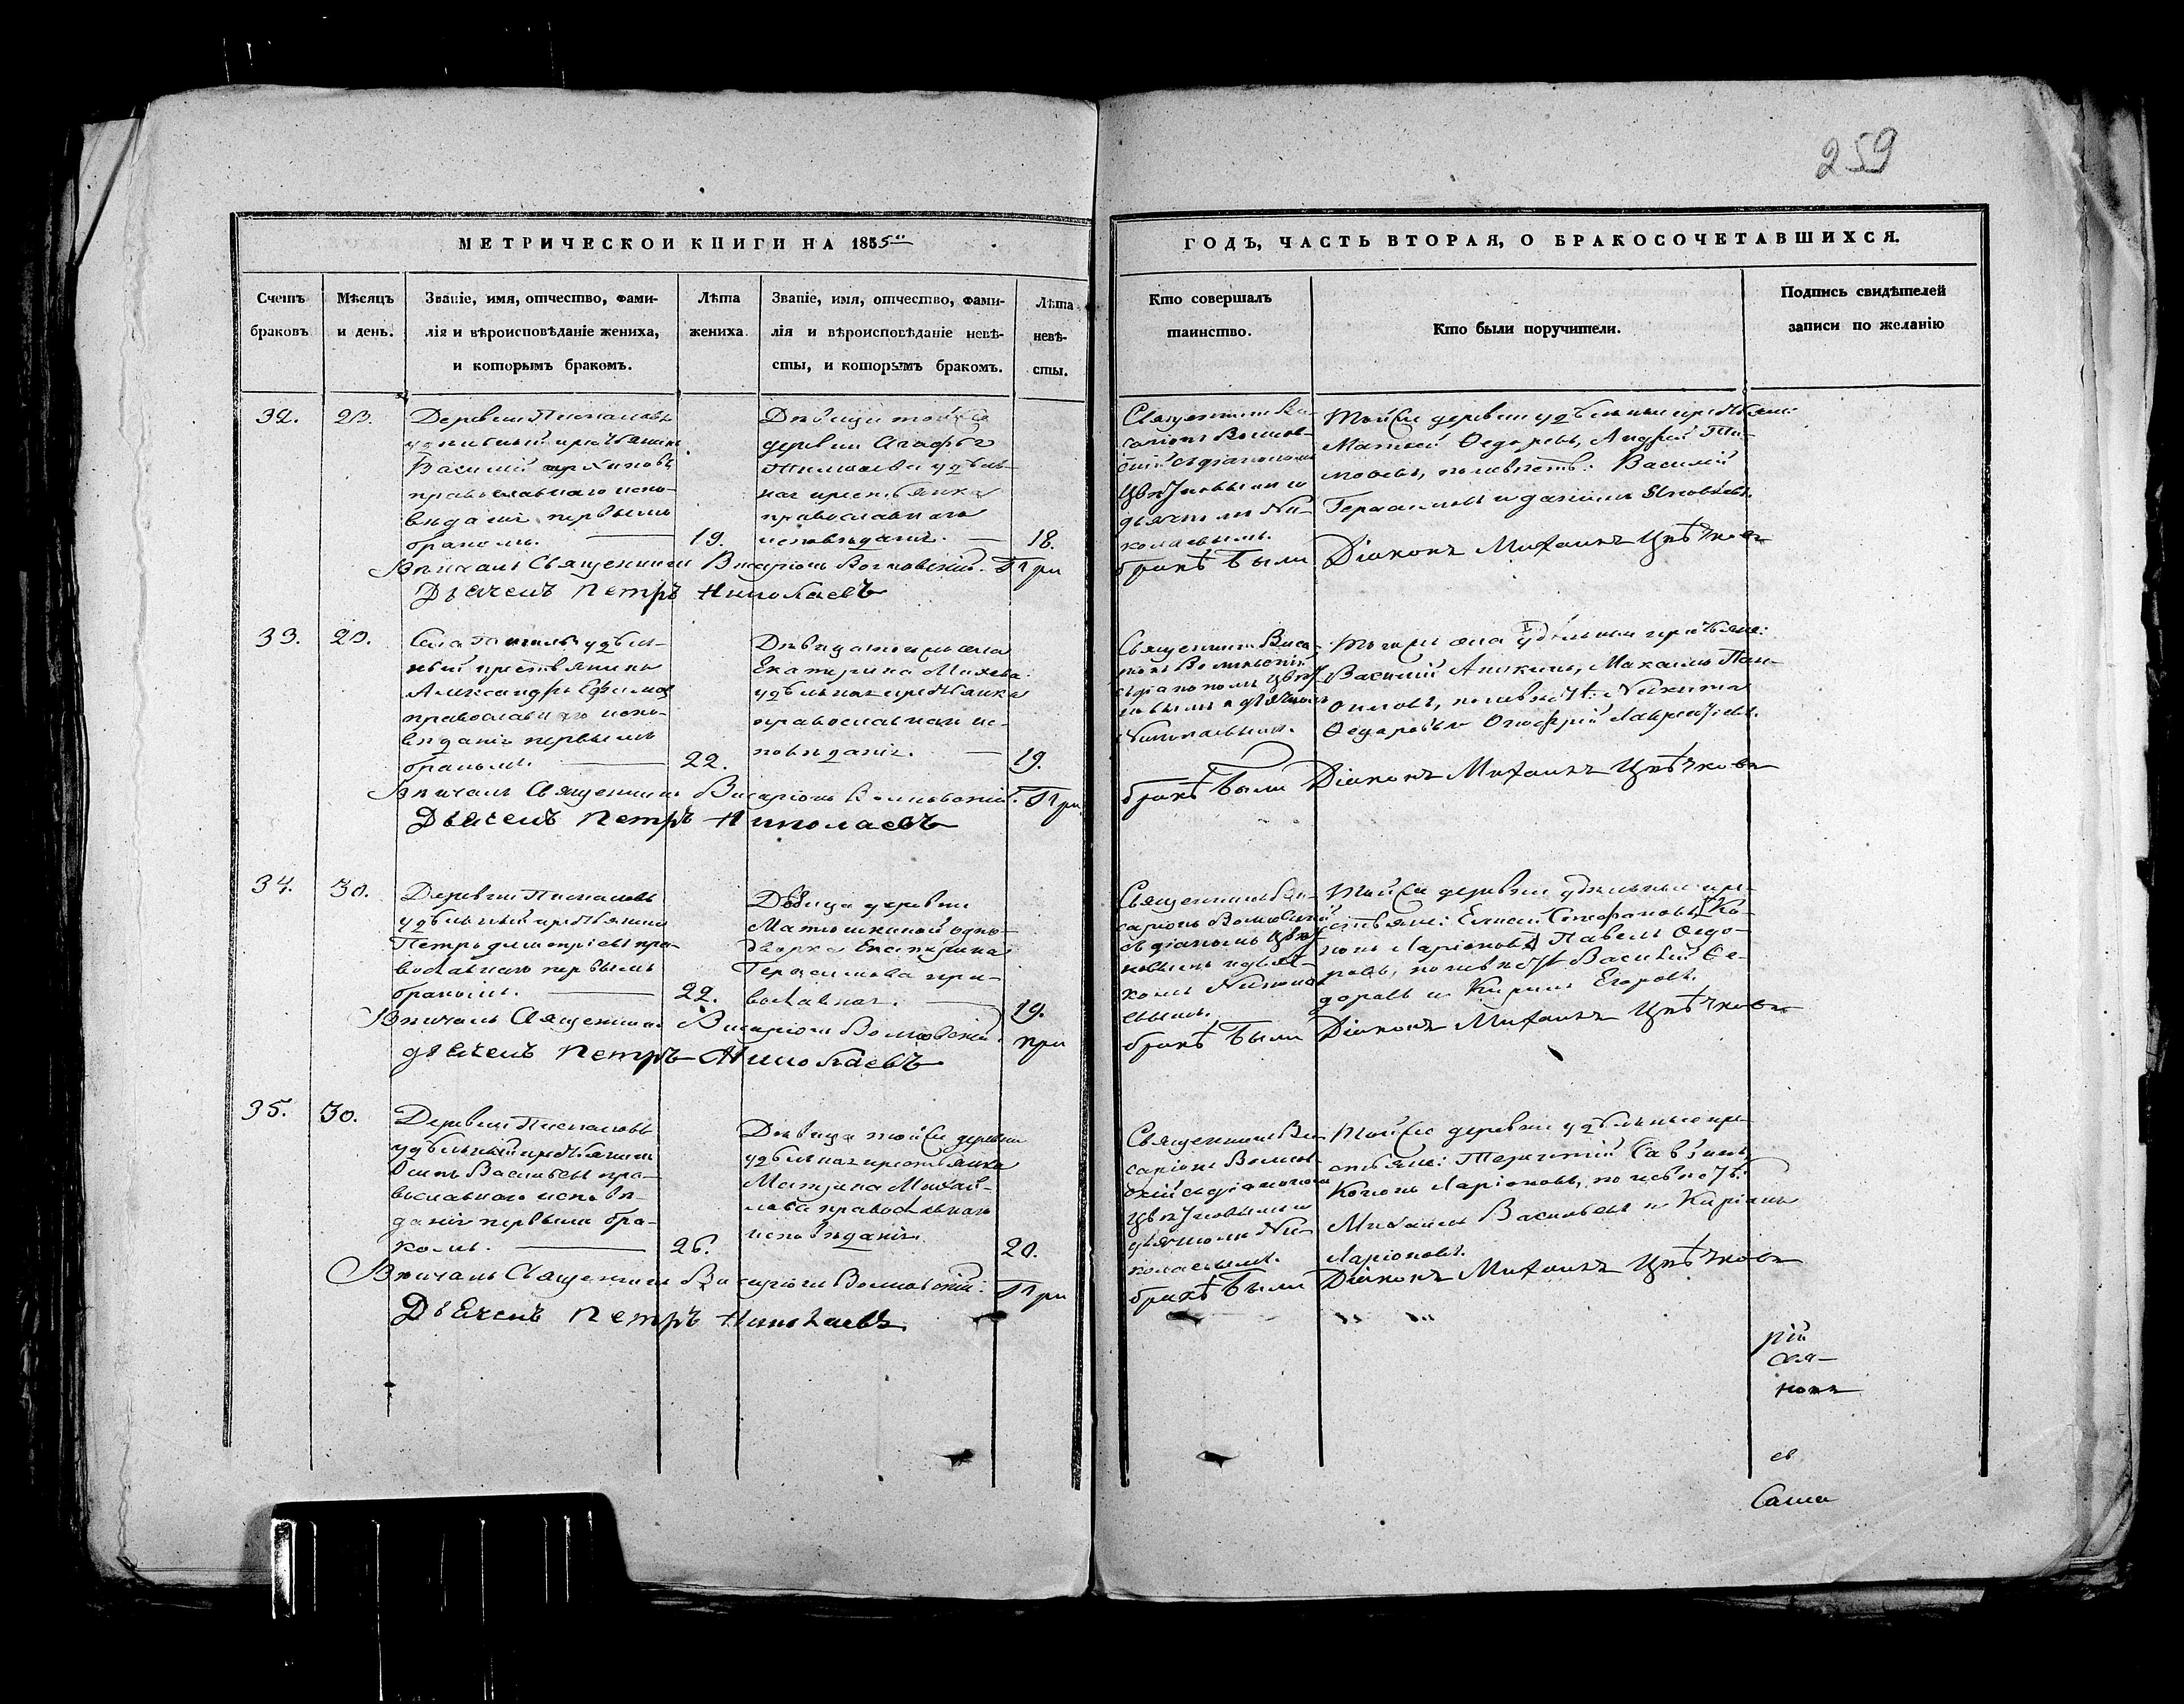 259
МЕТРИЧЕСКОЙ КНИГИ НА 1855
ГОДЪ, ЧАСТЬ ВТОРАЯ, О БРАКОСОЧЕТАВШИХСЯ.
Счетъ
браковъ
Мѣсяцъ
и день.
Званіе, имя, отчество, фами-
лія и вѣроисповѣданіе жениха,
и которымъ бракомъ.
Лѣта
жениха
Званіе, имя, отчество, фами-
лія и вѣроисповѣданіе невѣ-
сты, и которымъ бракомъ.
Лѣта
невѣ-
сты.
Кто совершалъ
таинство.
Кто были поручители.
Подпись свидѣтелей
записи по желанію
32.
23.
Деревни
удѣльный крестьянинъ
Василий
православнаго испо-
вѣданія первымъ
бракомъ.
19.
Дѣвица той же
деревни Агафья
удѣль-
ная крестьянка
православнаго
исповѣданія.
18.
Священникъ Ви-
саріонъ
съ діакономъ
Цвѣтковымъ и
дьячкомъ Ни-
колаевымъ.
Той же деревни удѣльные крестьяне:
Матвей Федоровъ, Андрей Ти-
мовеевъ, по невѣстѣ: Василій
Герасимовъ и Данило
Вѣнчалъ Священникъ Висаріонъ При
бракѣ были Діаконъ Михаилъ Цвѣтковъ
Дьячекъ Петръ Николаевъ
33.
20.
Села удѣль-
ный крестьянинъ
Александръ Ефимовъ
православнаго испо-
вѣданія первымъ
бракомъ.
22.
Дѣвица того же села
Екатерина
удѣльная крестьянка
православнаго ис-
повѣданія.
19.
Священникъ Виса-
ріонъ
съ діакономъ Цвѣт-
ковымъ и дьячкомъ
Николаевымъ.
Того же села удѣльные крестьяне:
Василий Аникинъ, Михаилъ Пан-
по невѣстѣ: Никита
Федоровъ и Онофрій Лаврентьевъ.
Вѣнчалъ Священникъ Висаріонъ При
бракѣ были Діаконъ Михаилъ Цвѣтковъ
Дьячекъ Петръ Николаевъ
34.
30.
Деревни
удѣльный крестьянинъ
Петръ Димитріевъ пра-
вославнаго первымъ
бракомъ.
22.
Дѣвица деревни
Матюшкиной одно-
дворка Екатерина
Герасимова пра-
вославная.
19.
Священникъ Ви-
саріонъ
съ діакономъ Цвѣт-
ковымъ и дьяч-
комъ Никола-
евымъ.
Той же деревни удѣльные кре-
стьяне: Стефановъ, Ко-
нонъ Ларіоновъ, Павелъ Федо-
ровъ, по невѣстѣ Василій Фе-
доровъ и Кирилъ Егоровъ.
Вѣнчалъ Священникъ Висаріонъ при
бракѣ были Діаконъ Михаилъ Цвѣтковъ
дьячекъ Петръ Николаевъ
35.
30.
Деревни
удѣльный крестьянинъ
Васильевъ пра-
вославнаго исповѣ-
данія первымъ бра-
комъ.
26.
Дѣвица той же деревни
удѣльная крестьянка
Матрена Михай-
лова православнаго
исповѣданія.
20.
Священникъ Ви-
саріонъ
съ діакономъ
Цвѣтковымъ и
дьячкомъ Ни-
колаевымъ.
Той же деревни удѣльные кре-
стьяне: Терентій
Кононъ Ларіоновъ, по невѣстѣ:
Михаилъ Васильевъ и
Ларіоновъ.
Вѣнчалъ Священникъ Висаріонъ При
бракѣ были Діаконъ Михаилъ Цвѣтковъ
Дьячекъ Петръ Николаевъ
рій